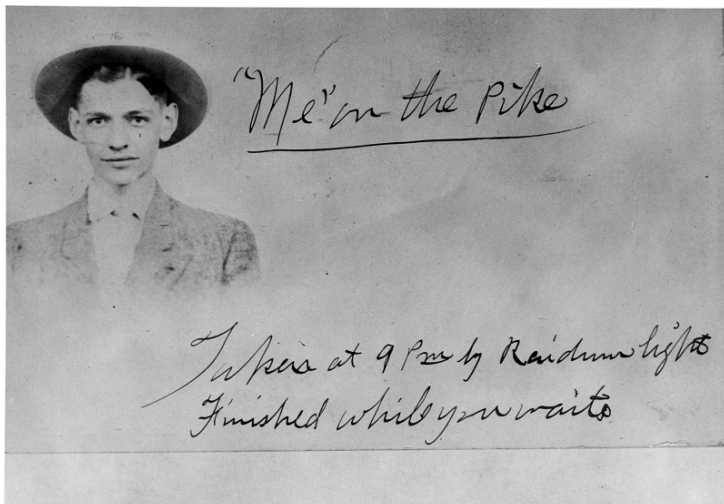 "Me" on the Pike
Taken at 9 Pm by Raidum light
Finished while you waits